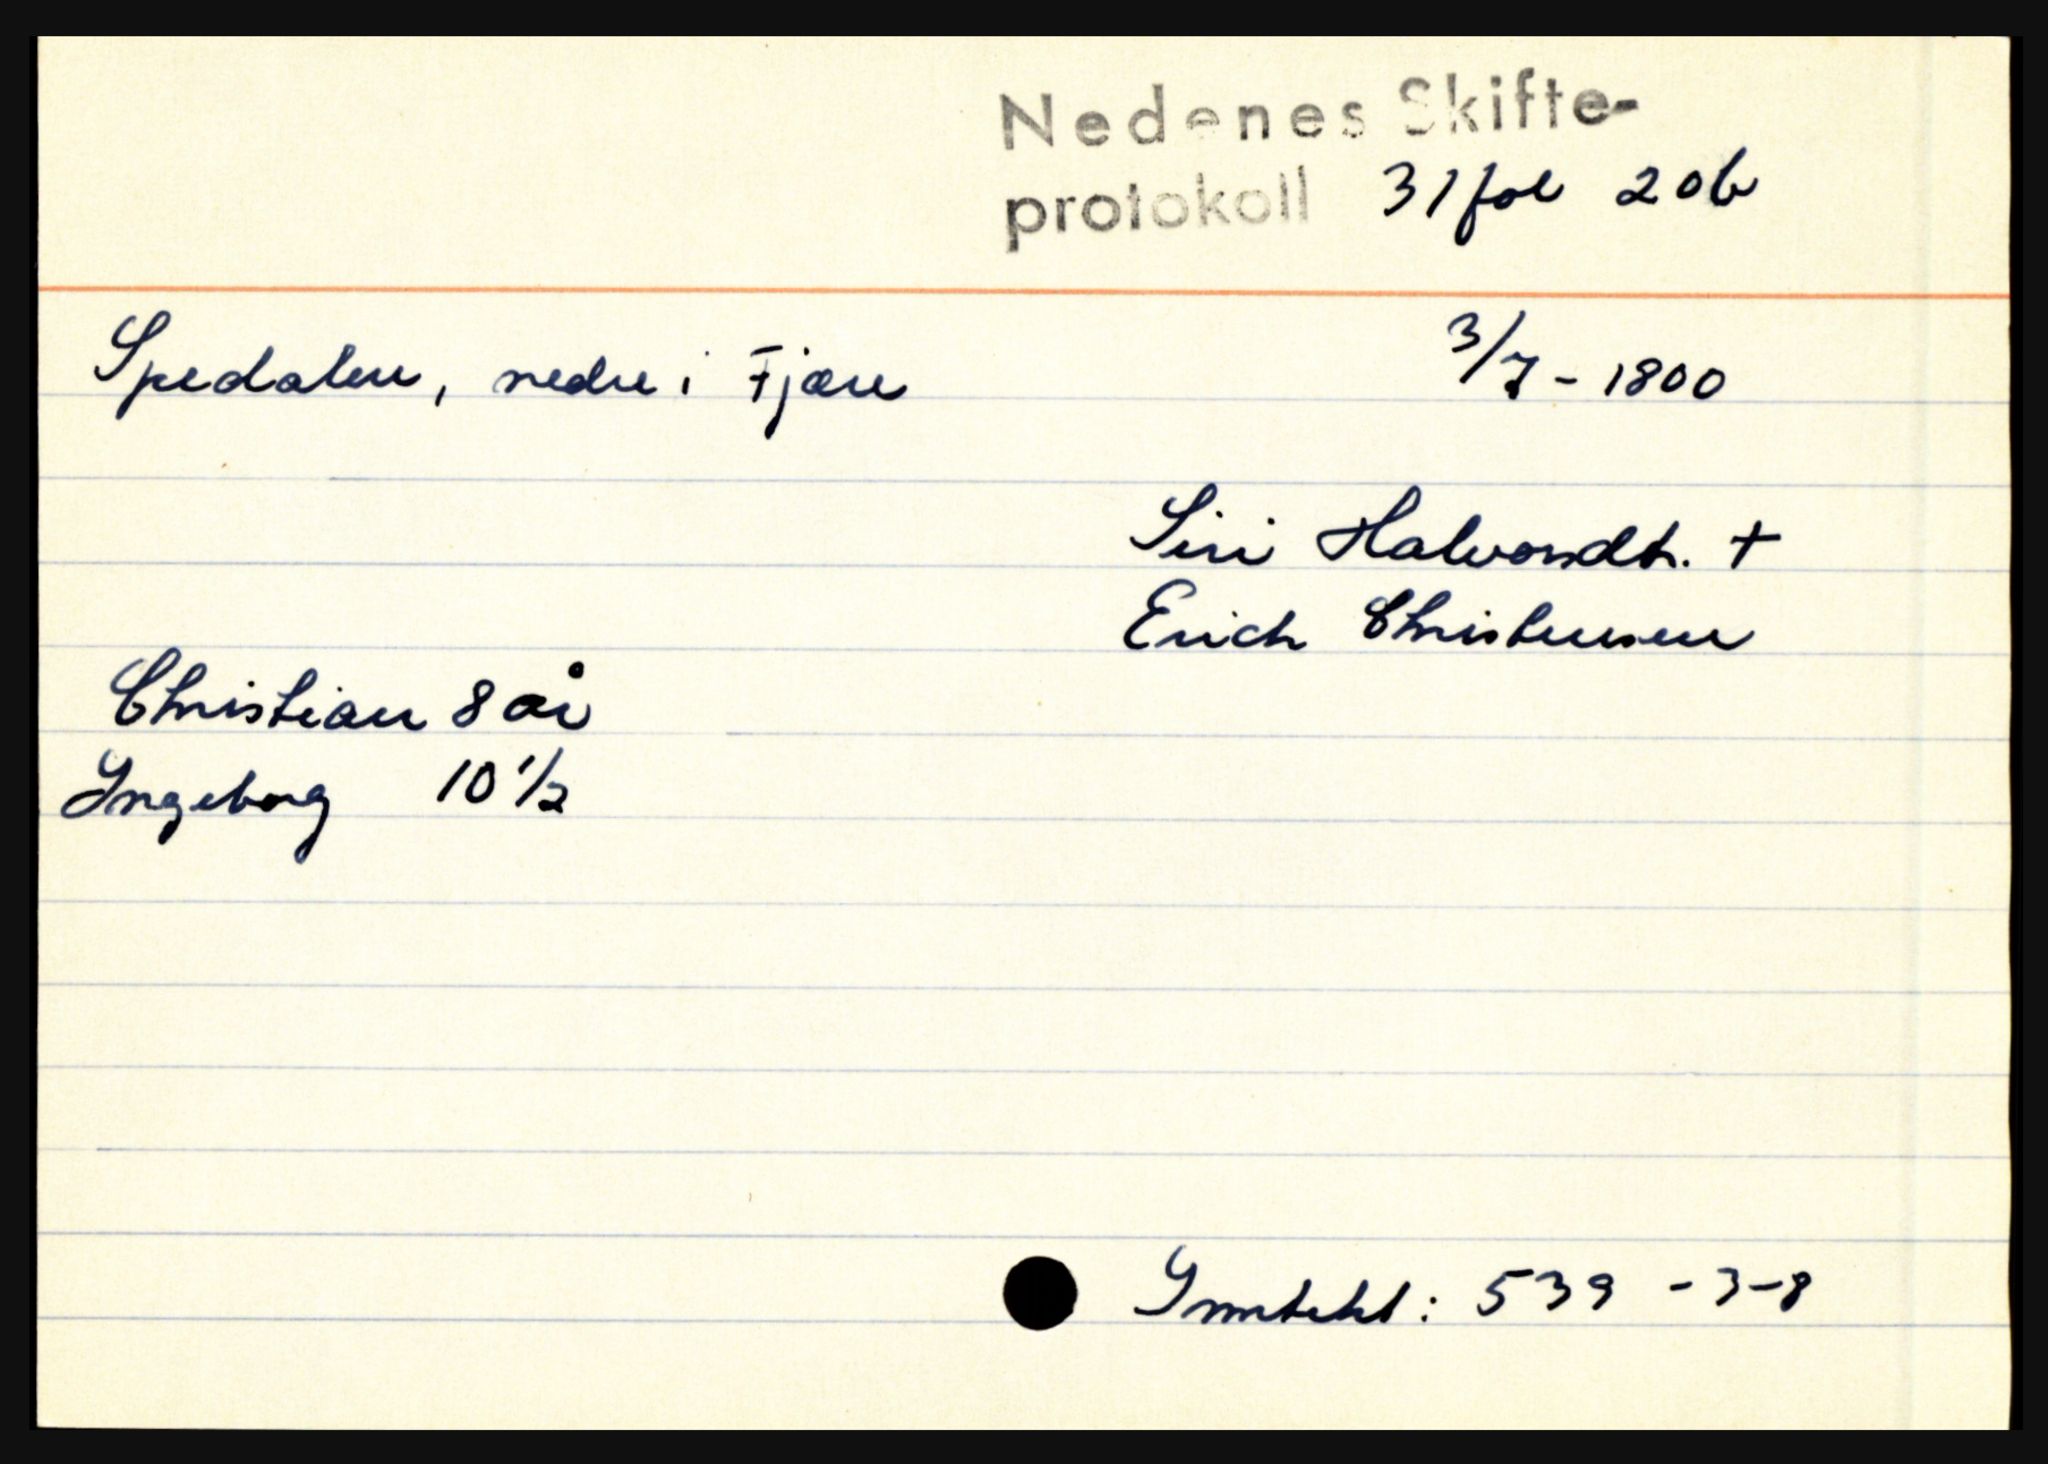 Nedenes Skifte-
protokoll 31 fol 20b
Spedalen, nedre i Fjære 3/7 - 1800
Siri Halvorsdtr. +
Erich Christensen
Christian 8 år
Ingeborg 10 1/2
Inntekt: 539 - 3 - 8